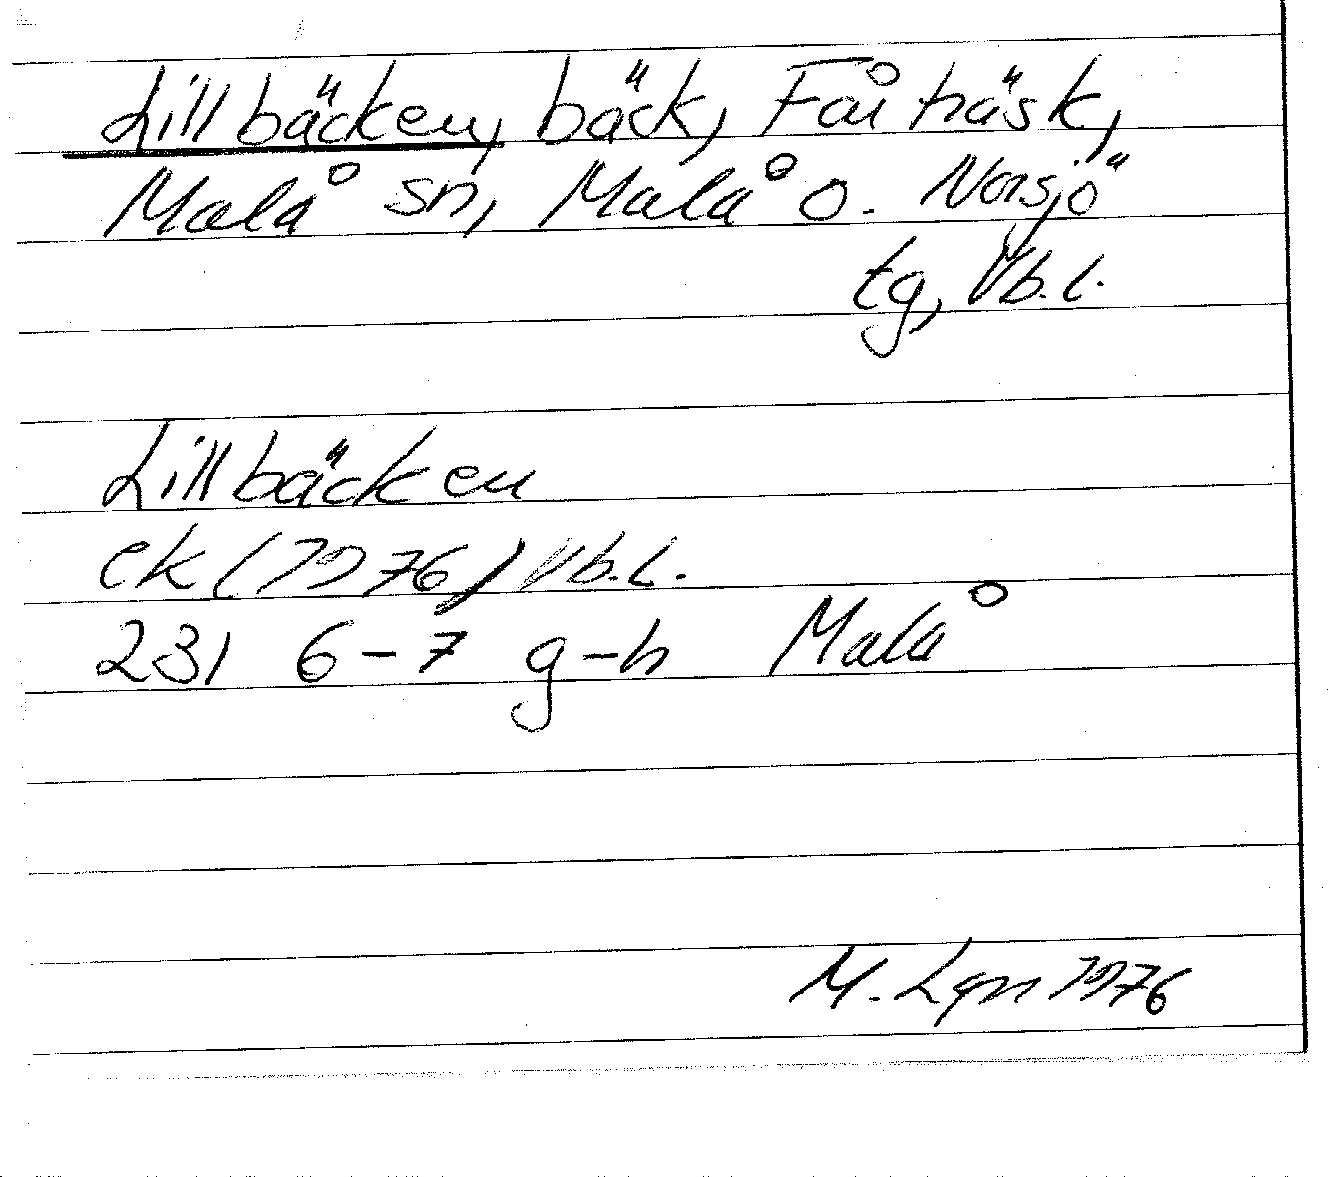 Lillbäcken, bäck, Fårträsk,
Malå sn, Malå o. Norsjö
tg, Vb.l.
Lillbäcken
ek (1976) Vb.l.
231 6-7 g-h Malå
M. Lgn 1976